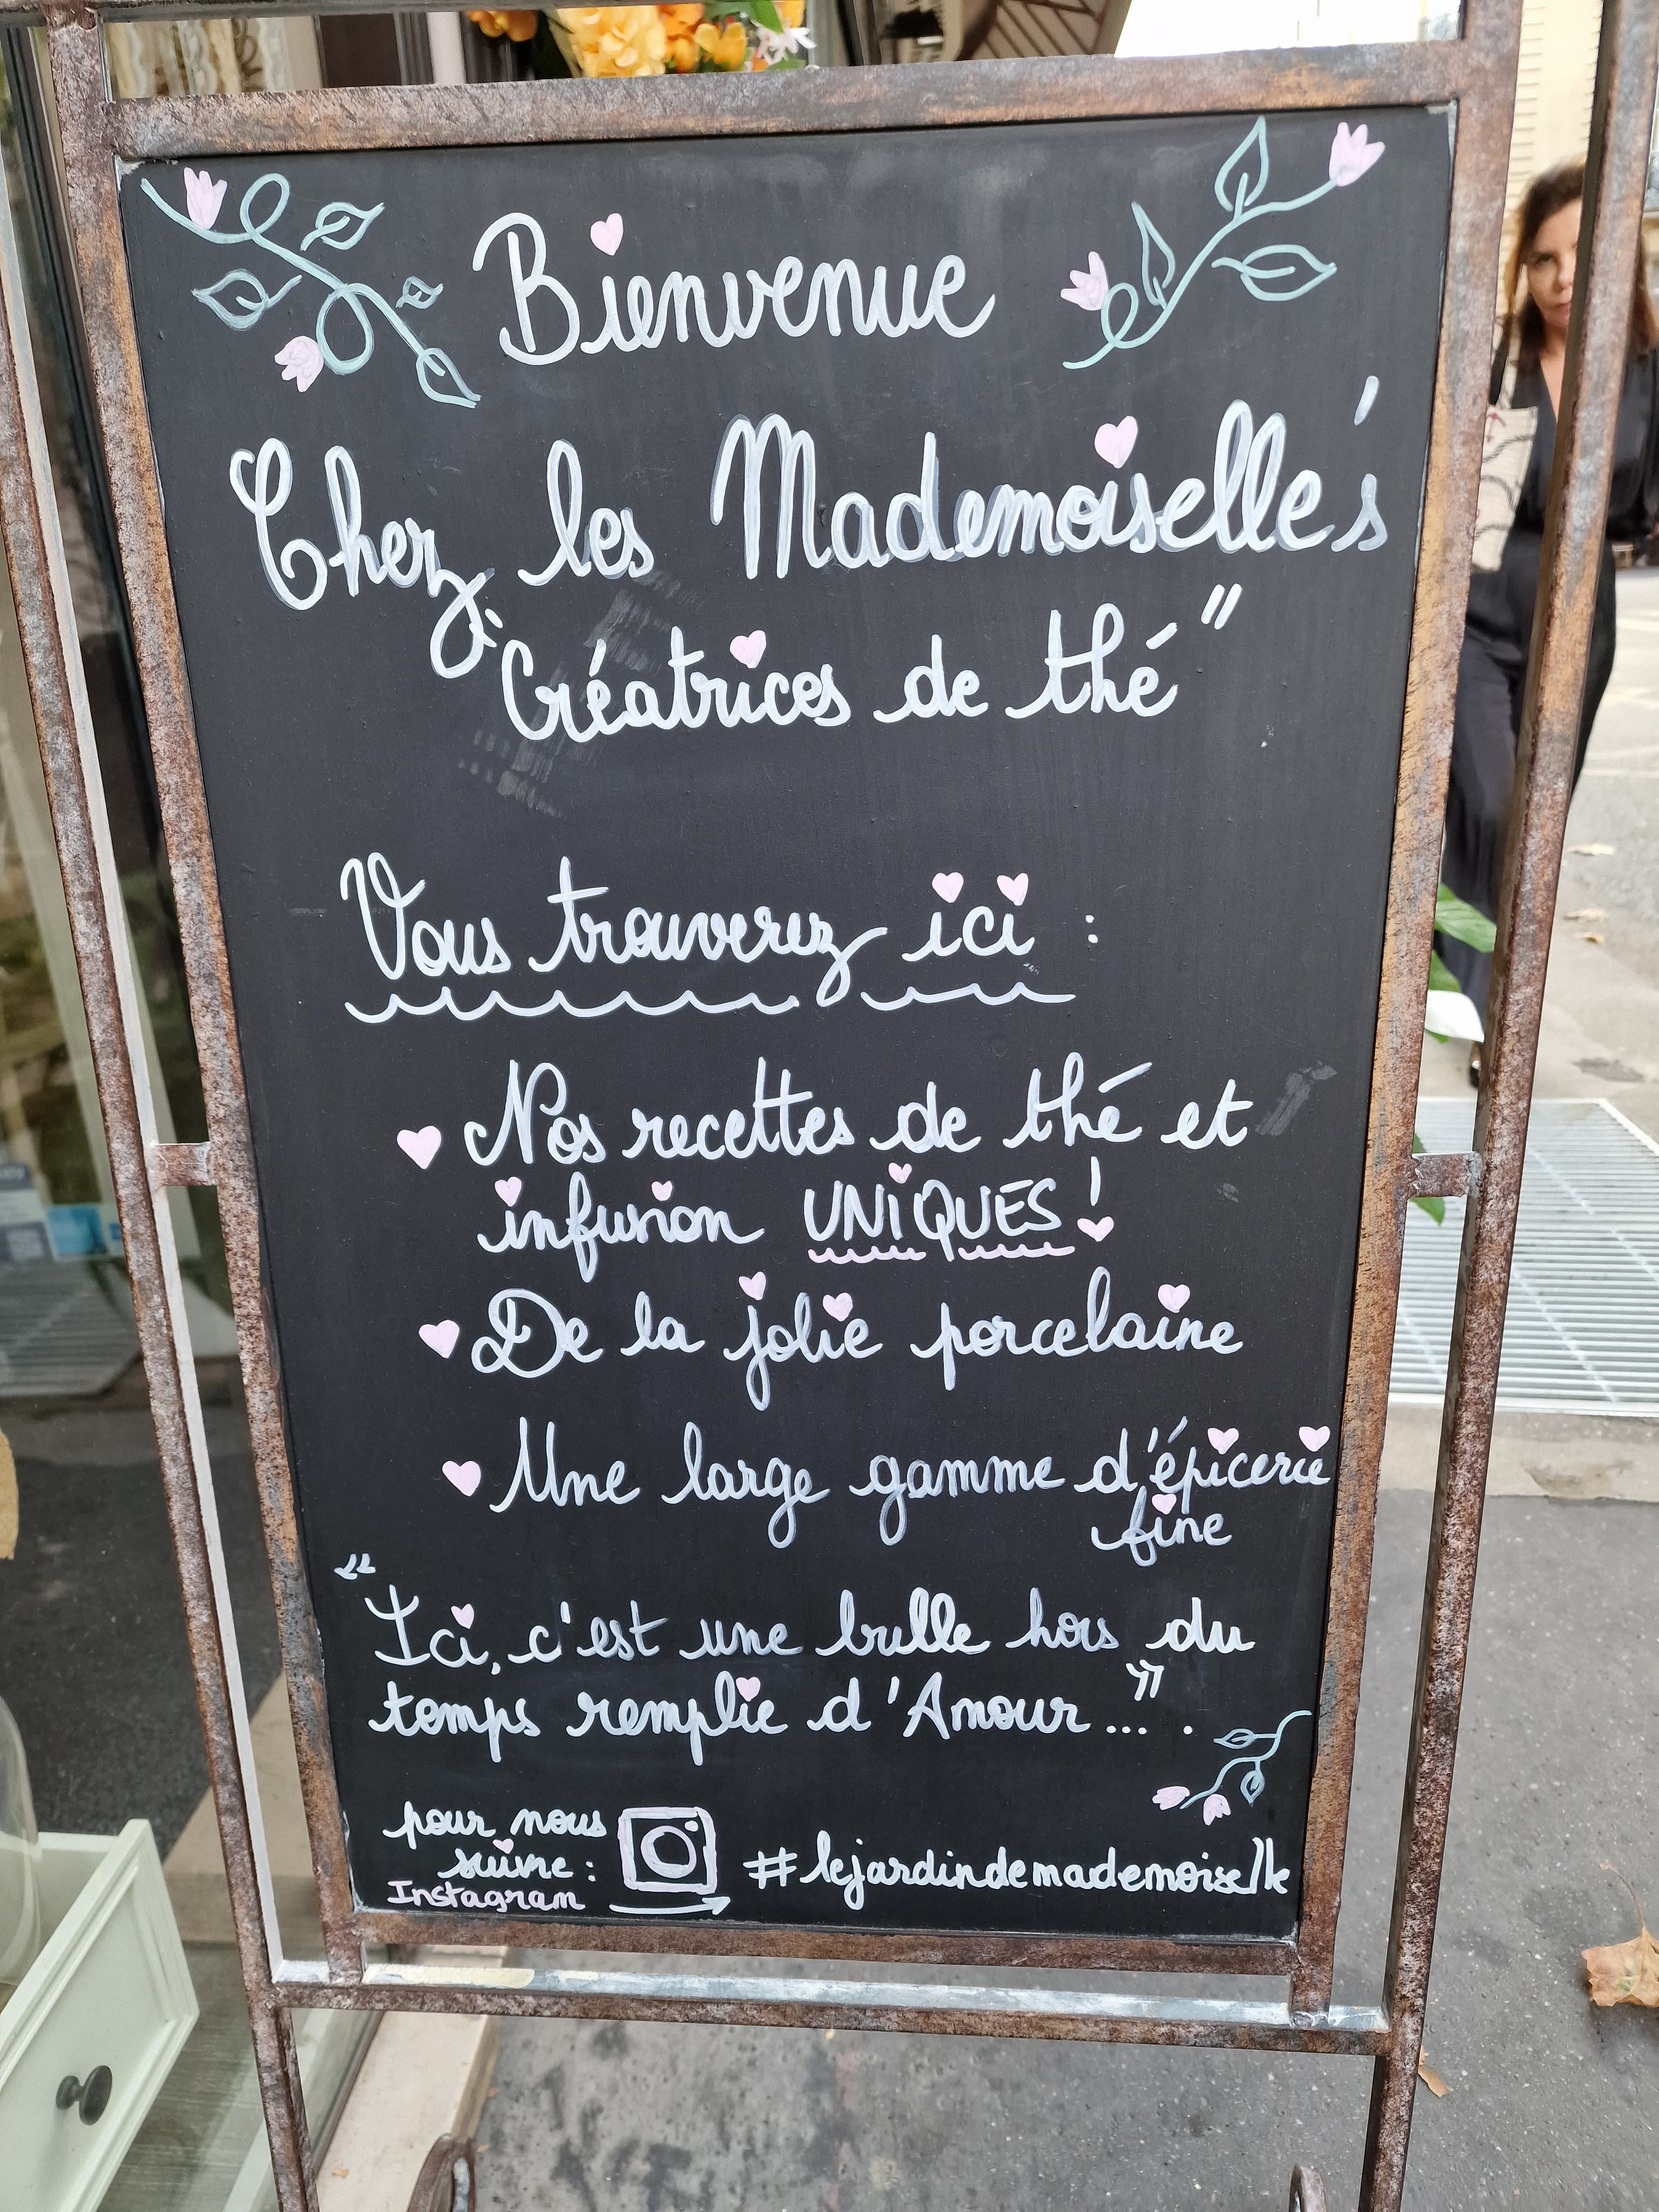 Bienvenue
Chez les Mademoiselle's
"Créatrices de thé"
Vous trouverez ici :
Nos recettes de thé et
infusion UNIQUES !
De la jolie porcelaine
Une large gamme d'épicerie
fine
"Ici, c'est une bulle hors du
temps remplie d'Amour..." .
pour nous
suivre :
Instagram
#lejardindemademoiselle